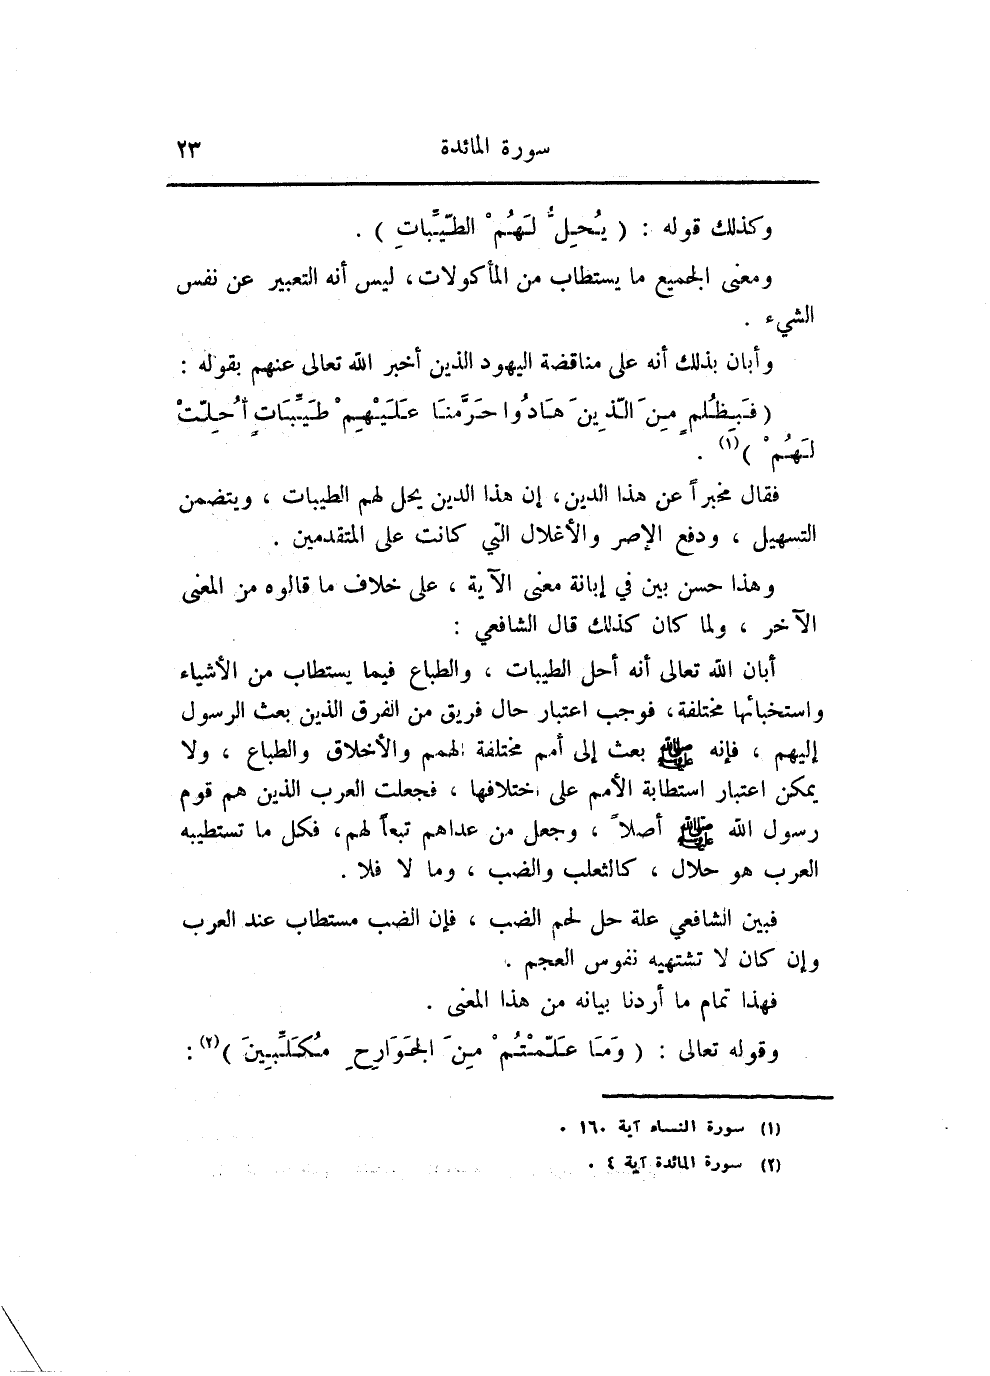 سورة المائدة ٢٣
وكذلك قوله : ( يُحِلُّ لَهُمْ الطَّيِّبَاتِ ) .
ومعنى الجميع ما يستطاب من المأكولات، ليس أنه التعبير عن نفس
الشيء .
وأبان بذلك أنه على مناقضة اليهود الذين أخبر الله تعالى عنهم بقوله :
( فَبِظُلمٍ مِنَ الَّذِينَ هَادُوا حَرَّمنَا عَلَيْهِمْ طَيِّبَاتٍ أُحِلَّتْ
لَهُمْ )(١) .
فقال مخبراً عن هذا الدين، إن هذا الدين يحل لهم الطيبات ، ويتضمن
التسهيل ، ودفع الإصر والأغلال التي كانت على المتقدمين .
وهذا حسن بين في إبانة معنى الآية ، على خلاف ما قالوه من المعنى
الآخر ، ولما كان كذلك قال الشافعي :
أبان الله تعالى أنه أحل الطيبات ، والطباع فيما يستطاب من الأشياء
واستخبائها مختلفة، فوجب اعتبار حال فريق من الفرق الذين بعث الرسول
إليهم ، فإنه ﷺ بعث إلى أمم مختلفة الهمم والأخلاق والطباع ، ولا
يمكن اعتبار استطابة الأمم على اختلافها ، فجعلت العرب الذين هم قوم
رسول الله ﷺ أصلاً ، وجعل من عداهم تبعاً لهم، فكل ما تستطيبه
العرب هو حلال ، كالثعلب والضب ، وما لا فلا .
فبين الشافعي علة حل لحم الضب ، فإن الضب مستطاب عند العرب
وإن كان لا تشتهيه نفوس العجم .
فهذا تمام ما أردنا بيانه من هذا المعنى .
وقوله تعالى : ( وَمَا عَلَّمْتُمْ مِنَ الجَوَارِحِ مُكَلِّبِينَ )(٢) :
(١) سورة النساء آية ١٦٠ .
(٢) سورة المائدة آية ٤ .